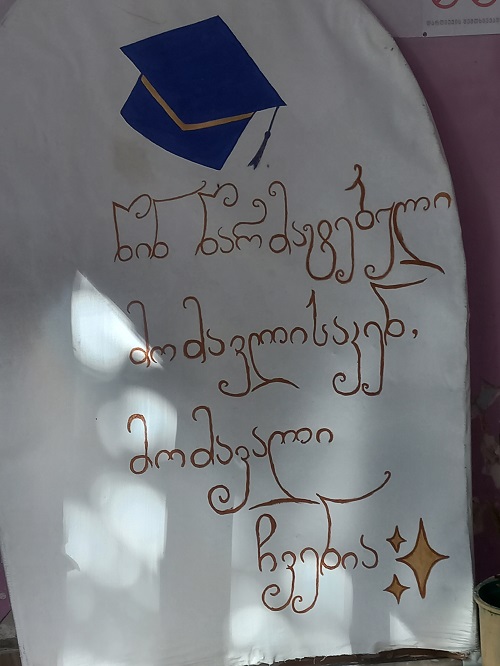 წინ წარმატებული
მომავლისაკენ,
მომავალი
ჩვენია